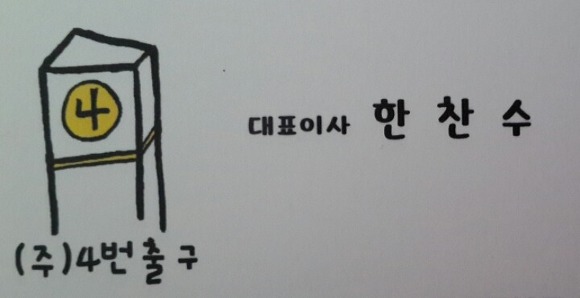 4
대표이사 한찬수
(주)4번출구